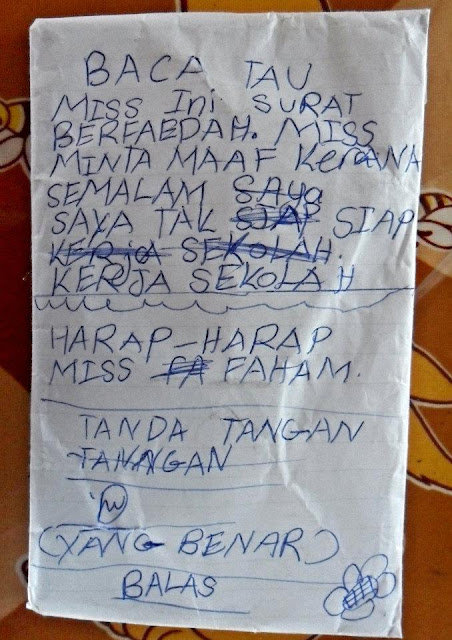 BACA TAU
MISS Ini SURAT
BERFAEDAH. MISS
MINTA MAAF KerANA
SEMALAM SAYA
SAYA TAK SIAP SIAP
KERJA SEKOLAH.
KERJA SEKOLAH
HARAP-HARAP
MISS FA FAHAM.
TANDA TANGAN
TANGAN
(YANG BENAR)
BALAS